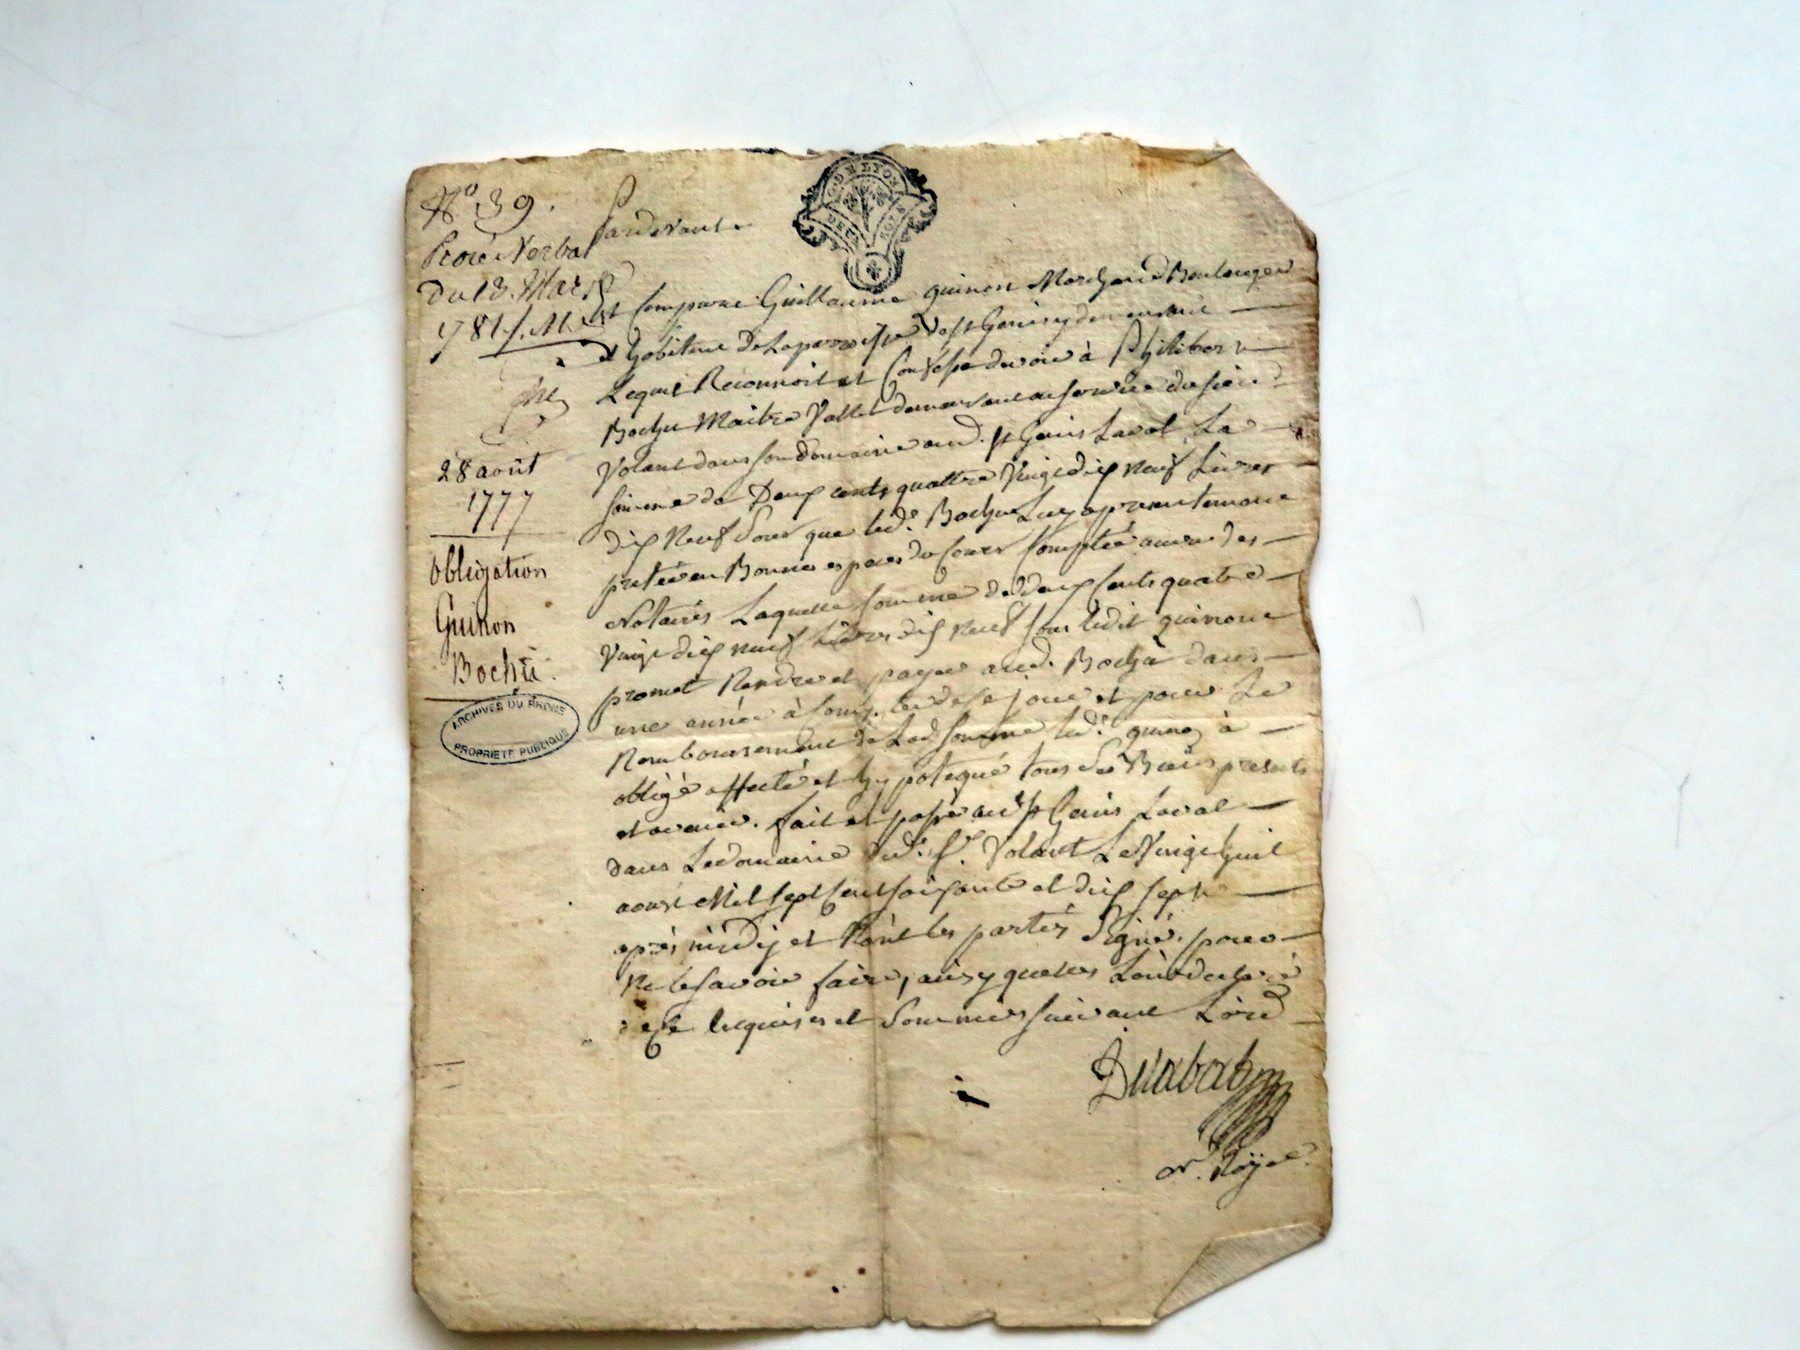 N.o 39.
Procé Verbal
Du 13. Mars
1781
28 août
1777
Obligation
Guinon
Boché.
ARCHIVES DU RHONE
PROPRIÉTÉ PUBLIQUE
G. DE LYON
DEUX SOLS
Pardevant
Comparu Guillaume quinon Marchand Boulanger
habitant De La parroisse de st Genis y demeurant
Lequel Reconnoit et Confesse devoir à Philibert
Boche Maitre Vallet demeurant au service du sieur
Volant dans son domaine aud. st Genis Laval La
somme de Deux cents quattre Vingt dix neuf Livres
dix neuf Sous que led. Boche Luy a presentement
preté en Bonnes espèces du Cours Comptée au vu des
Notaires Laquelle somme de deux Cents quatre
Vingt dix neuf Livres dix neuf sous ledit quinon
promet Rendre et payer aud. Boché dans
une année à Compter de ce jour et pour Le
Remboursement de Lad somme led. quinon à
obligé affecté et hypotequé tous ses Biens presents
et avenir. fait et passé aud st Genis Laval
dans Le domaine dud. sr. Volant Le Vingt huit
aoust Mil sept Cent soixante et dix sept
après midy et N'ont les parties Signé pour
ne le savoir faire, ainsy quelles L'ont declaré
de ce Requises et Sommées suivant L'ord
Royal.